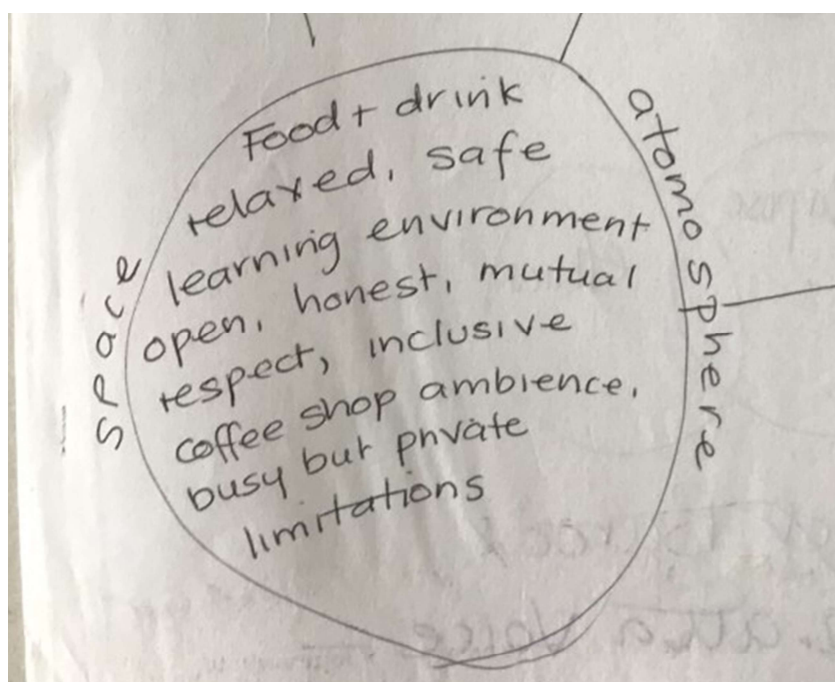 space
Food + drink
relaxed, safe
learning environment
open, honest, mutual
respect, inclusive
coffee shop ambience,
busy but private
limitations
atomosphere